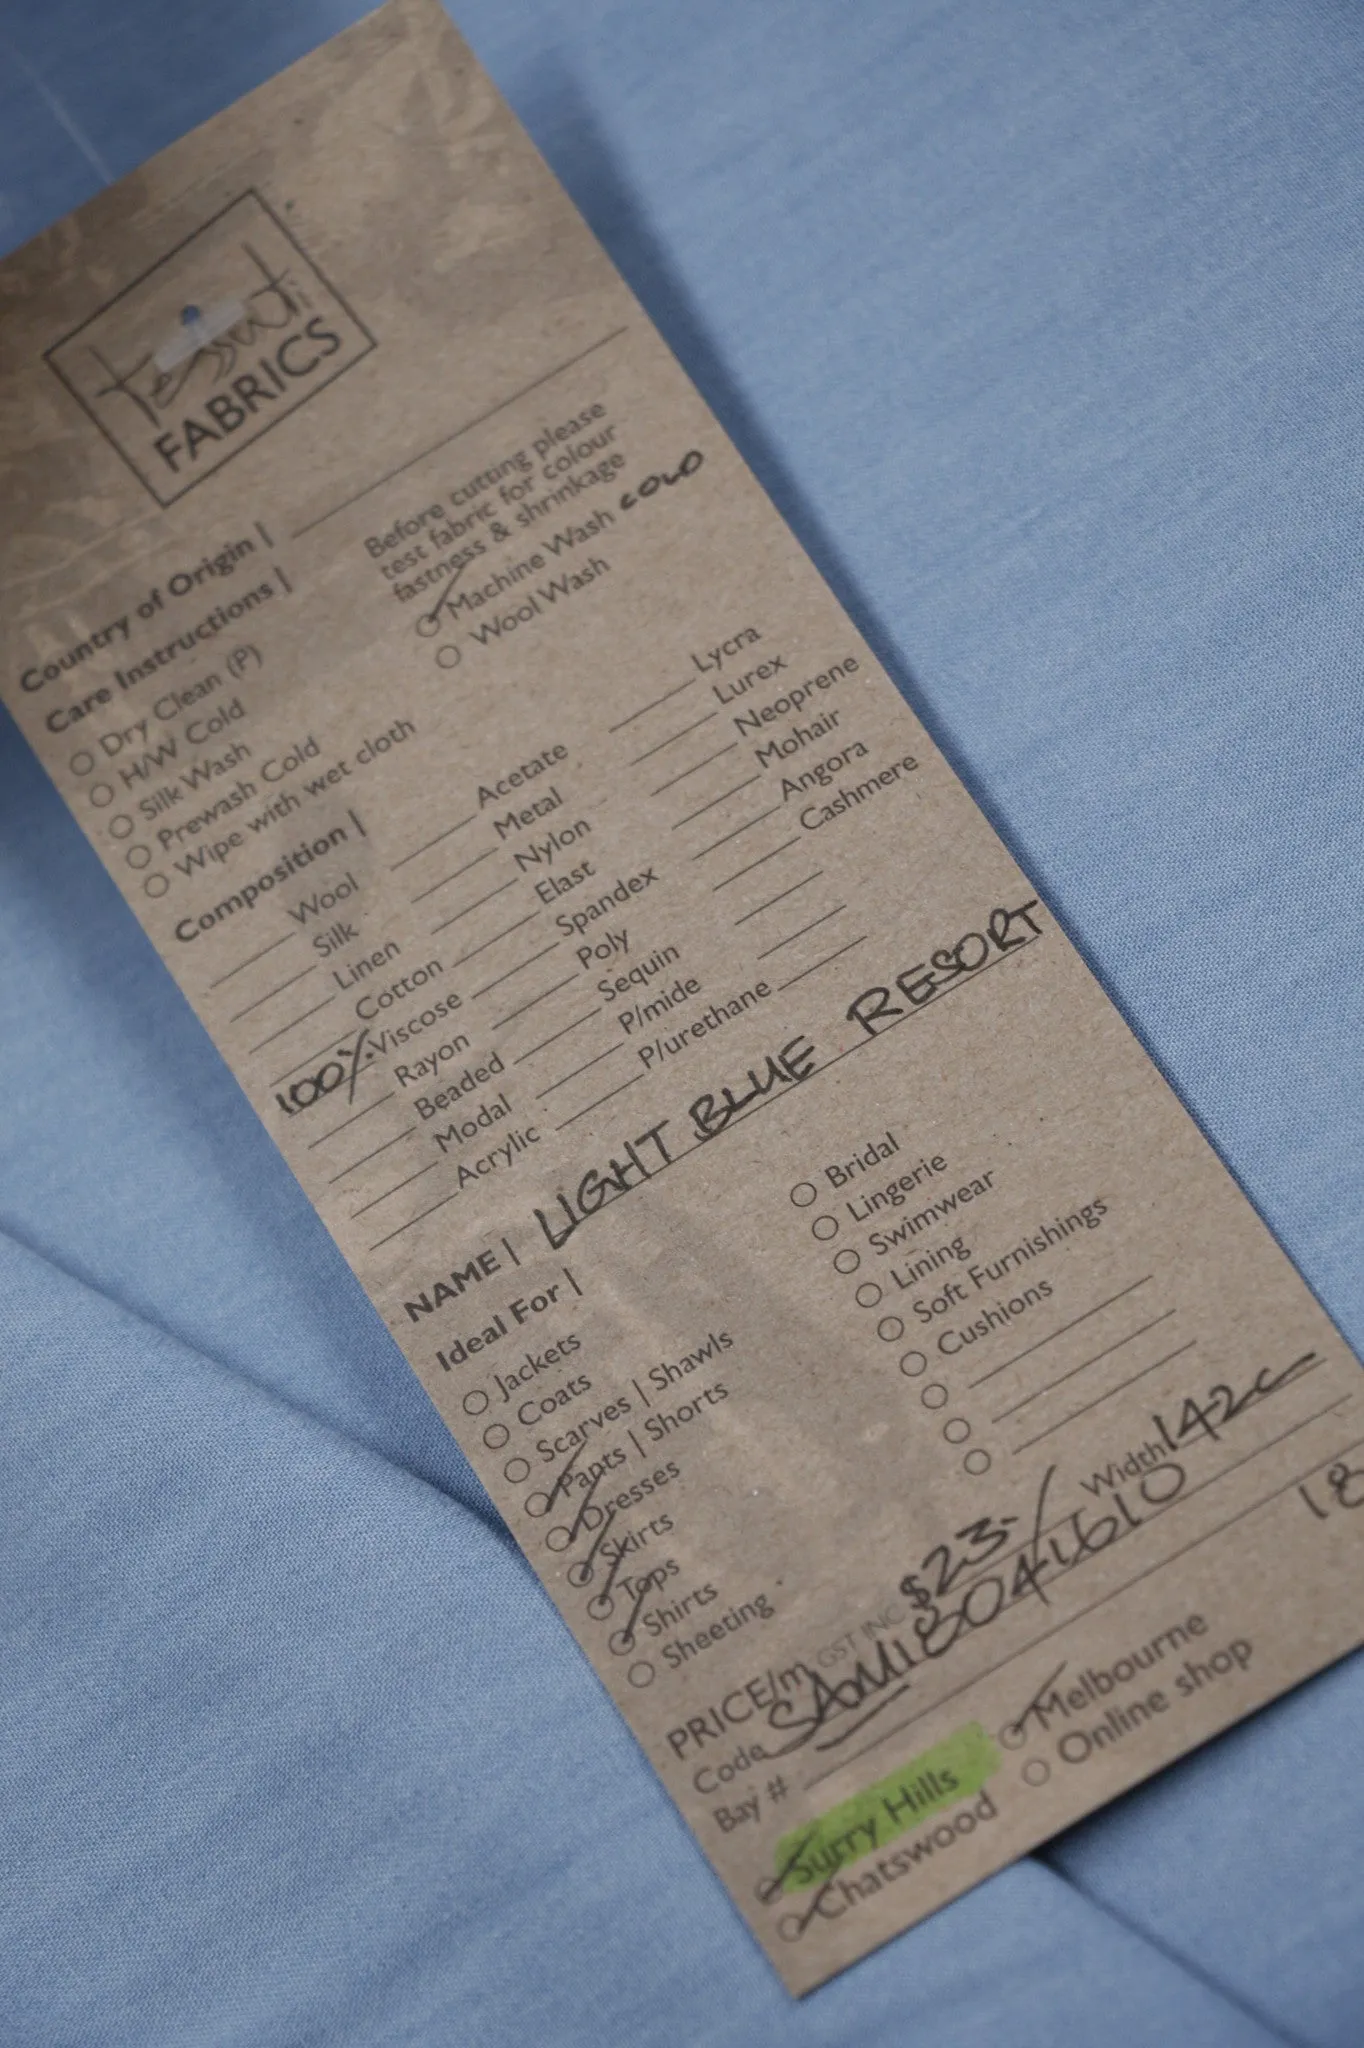 tessuti
FABRICS
Country of Origin |
Care Instructions |
Before cutting please
test fabric for colour
fastness & shrinkage
Dry Clean (P)
H/W Cold
Silk Wash
Prewash Cold
Wipe with wet cloth
Machine Wash COLD
Wool Wash
Composition |
Wool
Silk
Linen
Cotton
100% Viscose
Rayon
Beaded
Modal
Acrylic
Acetate
Metal
Nylon
Elast
Spandex
Poly
Sequin
P/mide
P/urethane
Lycra
Lurex
Neoprene
Mohair
Angora
Cashmere
NAME | LIGHT BLUE RESORT
Ideal For |
Jackets
Coats
Scarves | Shawls
Pants | Shorts
Dresses
Skirts
Tops
Shirts
Sheeting
Bridal
Lingerie
Swimwear
Lining
Soft Furnishings
Cushions
PRICE/m GST INC $23.- Width 142c
Code SAMI8041610
18
Bay #
Surry Hills
Chatswood
Melbourne
Online shop